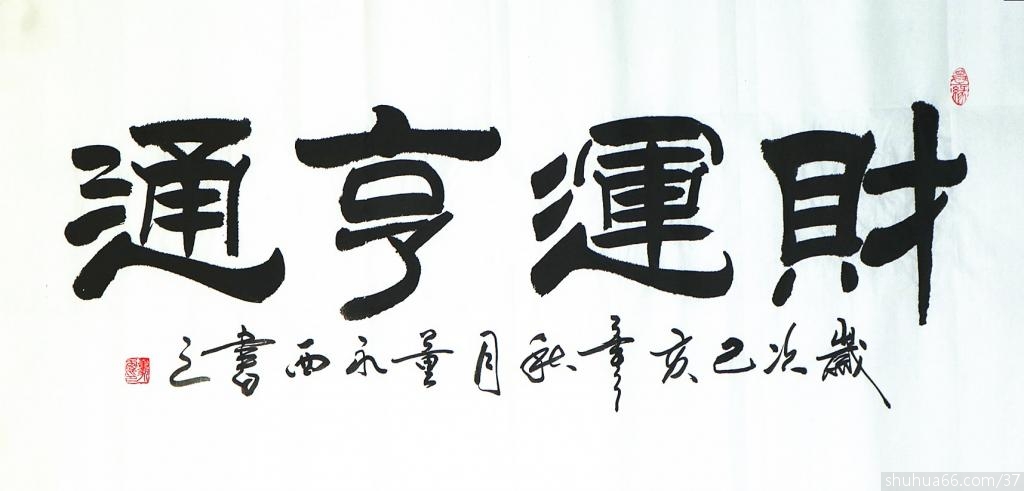 財運亨通
歲次己亥年秋月董永西書之
shuhua66.com/37